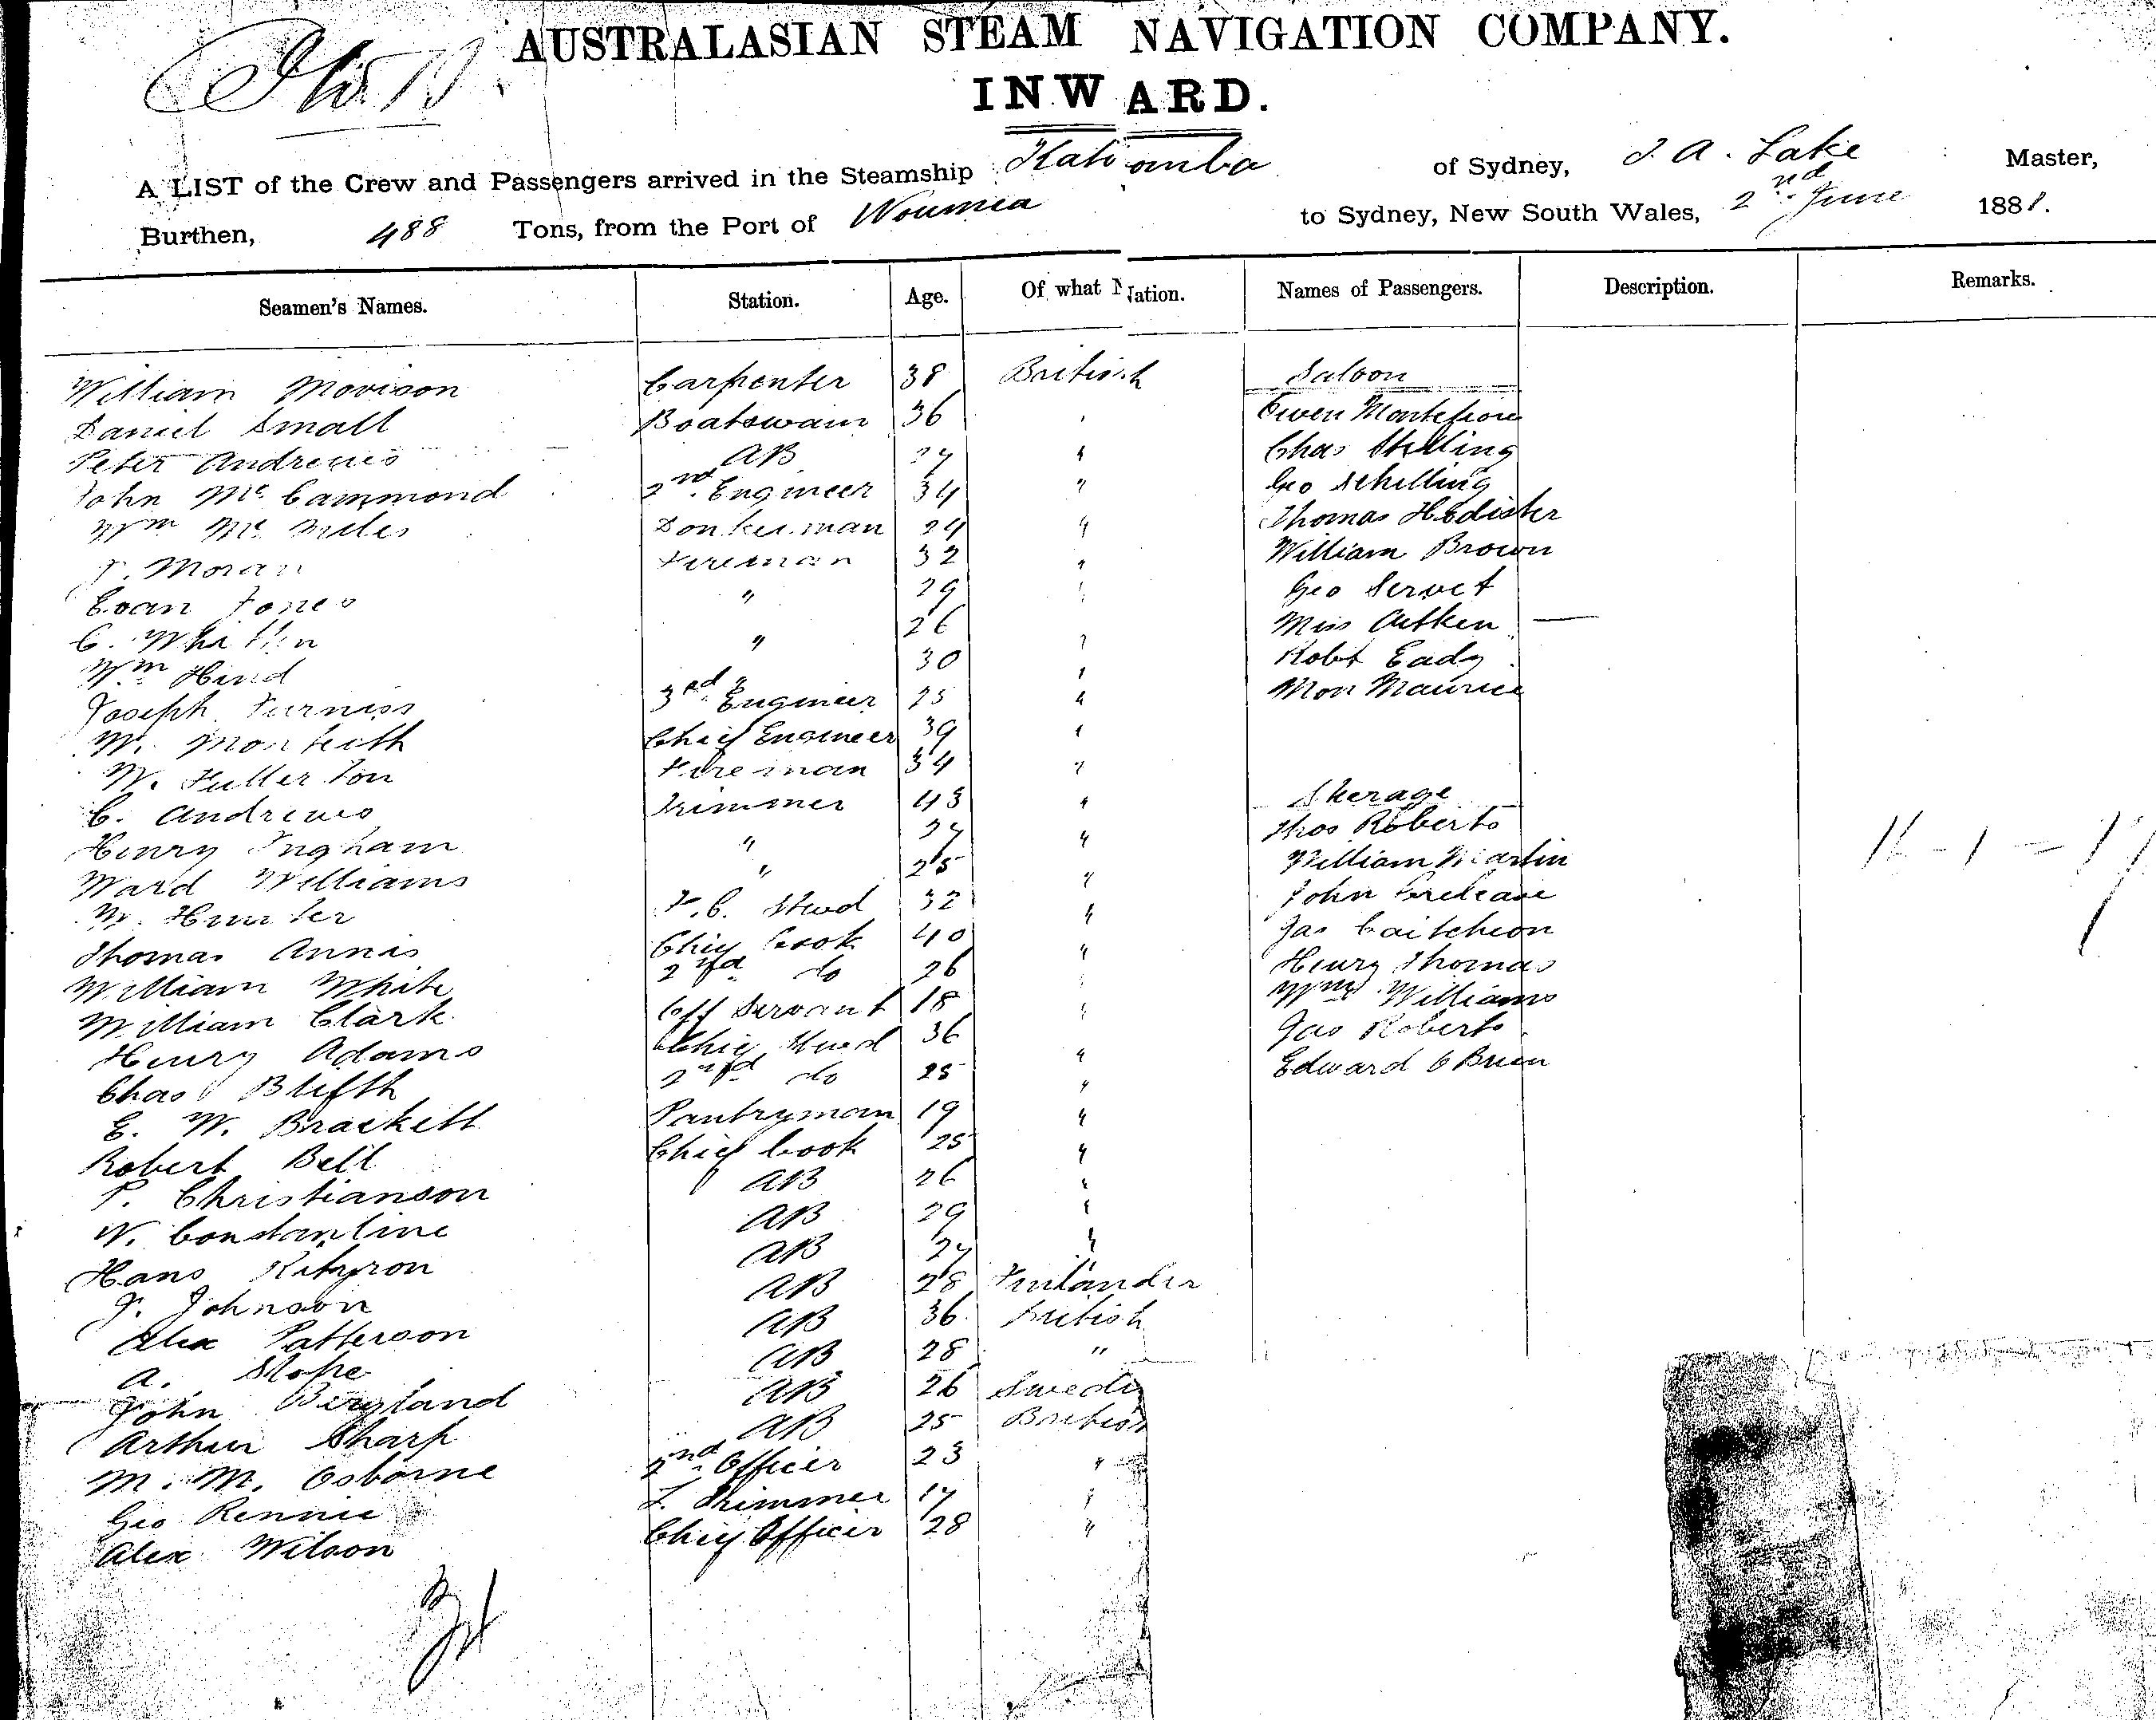 No 13.
AUSTRALASIAN STEAM NAVIGATION COMPANY.
INWARD.
A LIST of the Crew and Passengers arrived in the Steamship Katoomba of Sydney, J. A. Lake Master,
Burthen, 488 Tons, from the Port of Noumea to Sydney, New South Wales, 2nd June 1881.
Seamen's Names. Station. Age. Of what Nation. Names of Passengers. Description. Remarks.
William Morison Carpenter 38 British Saloon
Daniel Small Boatswain 36 Owen Montefiore
Peter Andrews AB 27 " Chas Stelling
John McCammond 2nd Engineer 34 " Geo Schilling
Wm Mc Donkeyman 24 " Thomas
T. Moran Fireman 32 " William Brown
Evan Jones " 29 " Geo Servet
C. 26 Miss Aitken
Wm Hind " 30 " Robt Eady
Joseph Furniss 3rd Engineer 25 " Mon Maurice
W. Monteith Chief Engineer 39 "
W. Fullerton Fireman 34 "
C. Andrews Trimmer 43 " Sterage
Henry Ingham " 27 " Thos Roberts
Ward Williams " 25 William Martin
W. Hunter F.C. Stewd 32 " John
Thomas Annis Chief Cook 40 " Jas Caitcheon
William White 2nd do 26 " Henry Thomas
William Clark Off Servant 18 " Wm Williams
Henry Adams Chief Stewd 36 Jas Roberts
Chas 2nd do 25 " Edward OBrien
E. W. Brackett Pantryman 19 "
Robert Bell Chief Cook 25 "
P. Christianson AB 26 "
W. Constantine AB 29 "
Hans AB 27 "
J. Johnson AB 28 Finlander
Alex Patterson AB 36 British
A. Slope AB 28 "
John Bergland AB 26 Swedish
Arthur Sharp AB 25 British
M. M. Osborne 2nd Officer 23 "
Geo Rennie T. Trimmer 17 "
Alex Wilson Chief Officer 28 "